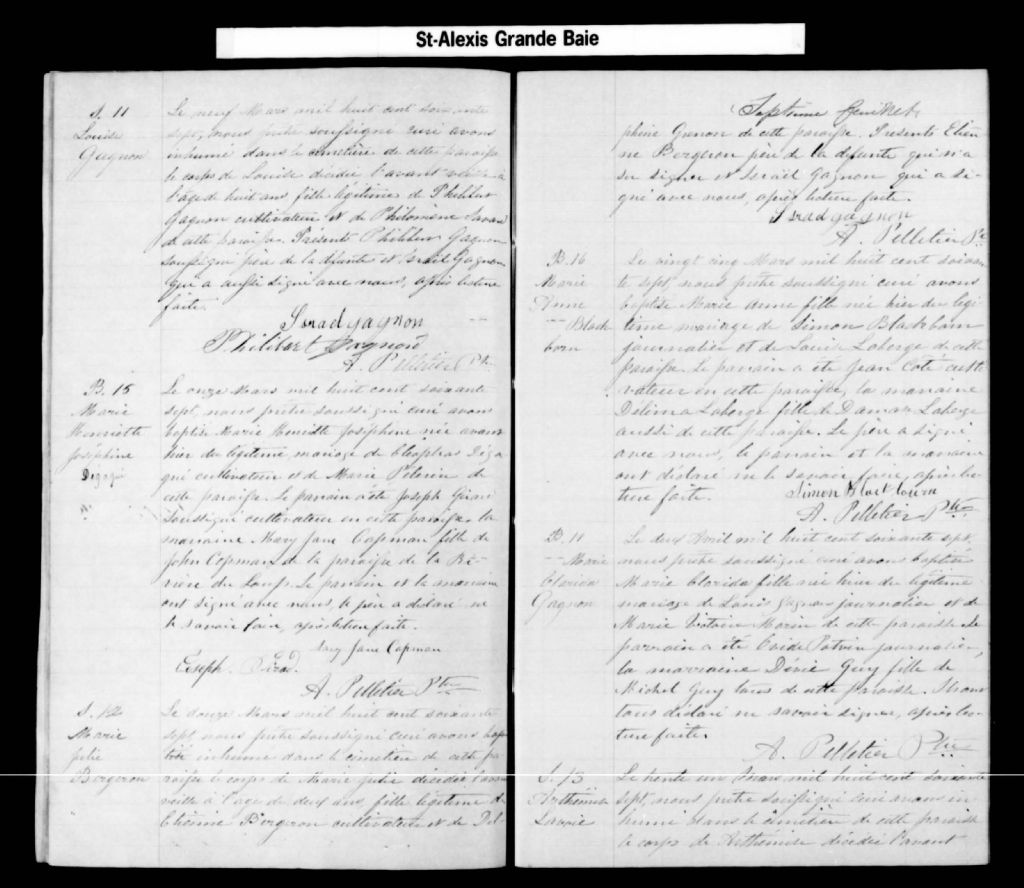 St-Alexis Grande Baie
S. 11
Louise
Gagnon
Le neuf Mars mil huit cent soixante
sept, nous prêtre soussigné curé avons
inhumé dans le cimetière de cette paroisse
le corps de Louise décédée l'avant veille à
l'age de huit ans, fille légitime de Philibert
Gagnon cultivateur et de Philomène
de cette paroisse. Présents Philibert Gagnon
soussigné père de la défunte et Israël Gagnon
qui a aussi signé avec nous, après lecture
faite.
Israd gagnon
Philibert gagnond
A. Pelletier Ptre
B. 15
Marie
Henriette
Joséphine
Le onze Mars mil huit cent soixante
sept, nous prêtre soussigné curé avons
baptisé Marie Henriette Joséphine née avant
hier du légitime mariage de Cléophas
cultivateur et de Marie Pelerin de
cette paroisse. Le parrain a été Joseph
soussigné cultivateur en cette paroisse, la
marraine Mary Jane Capman fille de
John Capman de la paroisse de la Ri-
vière du Loup. Le parrain et la marraine
ont signé avec nous, le père a déclaré ne
le savoir faire, après lecture faite.
Mary Jane Capman
Joseph
A. Pelletier Ptre
S. 12
Marie
Julie
Bergeron
Le douze Mars mil huit cent soixante
sept nous prêtre soussigné curé avons
inhumé dans le cimetière de cette pa-
roisse le corps de Marie Julie décédée l'avant
veille à l'age de deux ans, fille légitime d'
Etienne Bergeron cultivateur et de Del-
Septième feuillet
phine Grenon de cette paroisse. Présents Etien
ne Bergeron père de la défunte qui n'a
su signer et Israël Gagnon qui a si-
gné avec nous, après lecture faite.
Israd gagnon
A. Pelletier Ptre
B. 16
Marie
Anne
Black
born
Le vingt cinq Mars mil huit cent soixan
te sept, nous prêtre soussigné curé avons
baptisé Marie anne fille née hier du légi
time mariage de Simon Blackborn
journalier et de Louise Laberge de cette
paroisse. Le parrain a été Jean Coté culti
vateur en cette paroisse, la marraine
Délima Laberge fille de Damas Laberge
aussi de cette paroisse. Le père a signé
avec nous, le parrain et la marraine
ont déclaré ne le savoir faire, après lec-
ture faite.
Simon
A. Pelletier Ptre
B. 11
Marie
Clorida
Gagnon
Le deux Avril mil huit cent soixante sept,
nous prêtre soussigné curé avons baptisé
Marie Clorida fille née hier du légitime
mariage de Louis Gagnon journalier et de
Marie Victoire Morin de cette paroisse. Le
parrain a été Potvin journalier,
la marraine Guy fille de
Michel Guy tous de cette paroisse.
tous déclaré ne savoir signer, après lec-
ture faite.
A. Pelletier Ptre
S. 13
Arthémise
Lavoie
Le trente un Mars mil huit cent soixante
sept, nous prêtre soussigné curé avons in
humé dans le cimetière de cette paroisse
le corps de Arthémise décédée l'avant